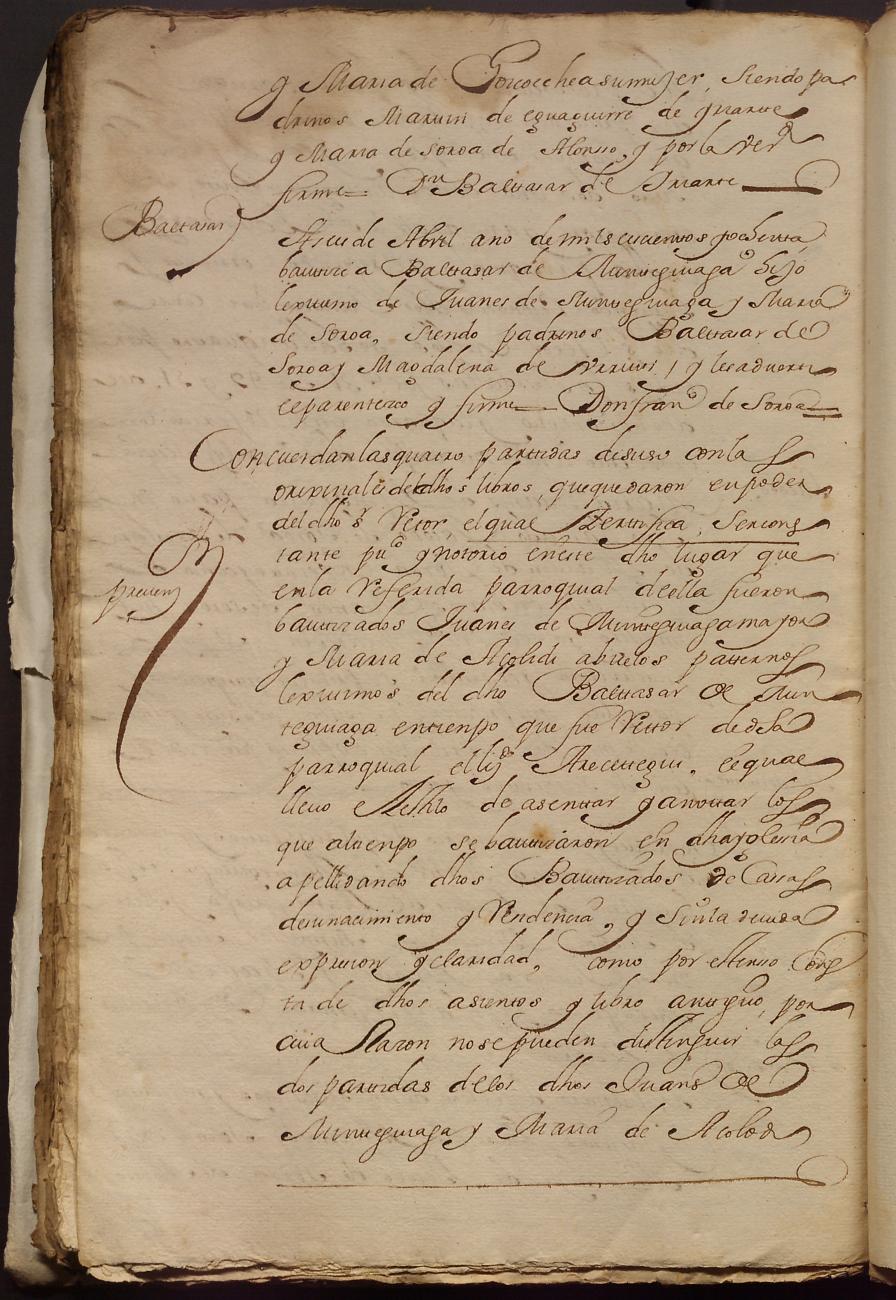 y Maria de Goicoechea su muger, siendo pa
drinos Martin de eguaguirre de yriarte
y Maria de Soroa de Alonso, y por la verd
firme = Dn Baltasar de Yriarte
Baltasar
A seis de Abril ano de mil seiscientos y ochenta
bautize a Baltasar de Munteguiaga hijo
lexitimo de Juanes de Munteguiaga y Maria
de Soroa, siendo padrinos Baltasar de
Soroa y Magdalena de y les adverti
el parentezco y firme = Don Franco de Soroa =
Concuerdan las quatro partidas de suso con las
originales del dhos libros, que quedaron en poder
del dho sr Retor, el qual Zertifica, ser cons
tante puco y notorio en este dho lugar que
en la referida parroquial de ella fueron
bautizados Juanes de Munteguiaga mayor
y Maria de Acolidi abuelos paternos
lexitimos del dho Baltasar de Mun
teguiaga en tienpo que fue Retor de dha
parroquial el lizdo Areceitegui, el qual
llevo el estilo de asentar y anotar los
que al tienpo se bautizaron en dha yglesia
apellidando dhos Bautizados de Cassas
de su nacimiento y Residencia, y sin la devida
expresion y claridad, como por estenso cons
ta de dhos asientos y libro antiguo, por
cuia Razon no se pueden distinguir las
dos partidas de los dhos Juans de
Munteguiaga y Maria de Acolodi